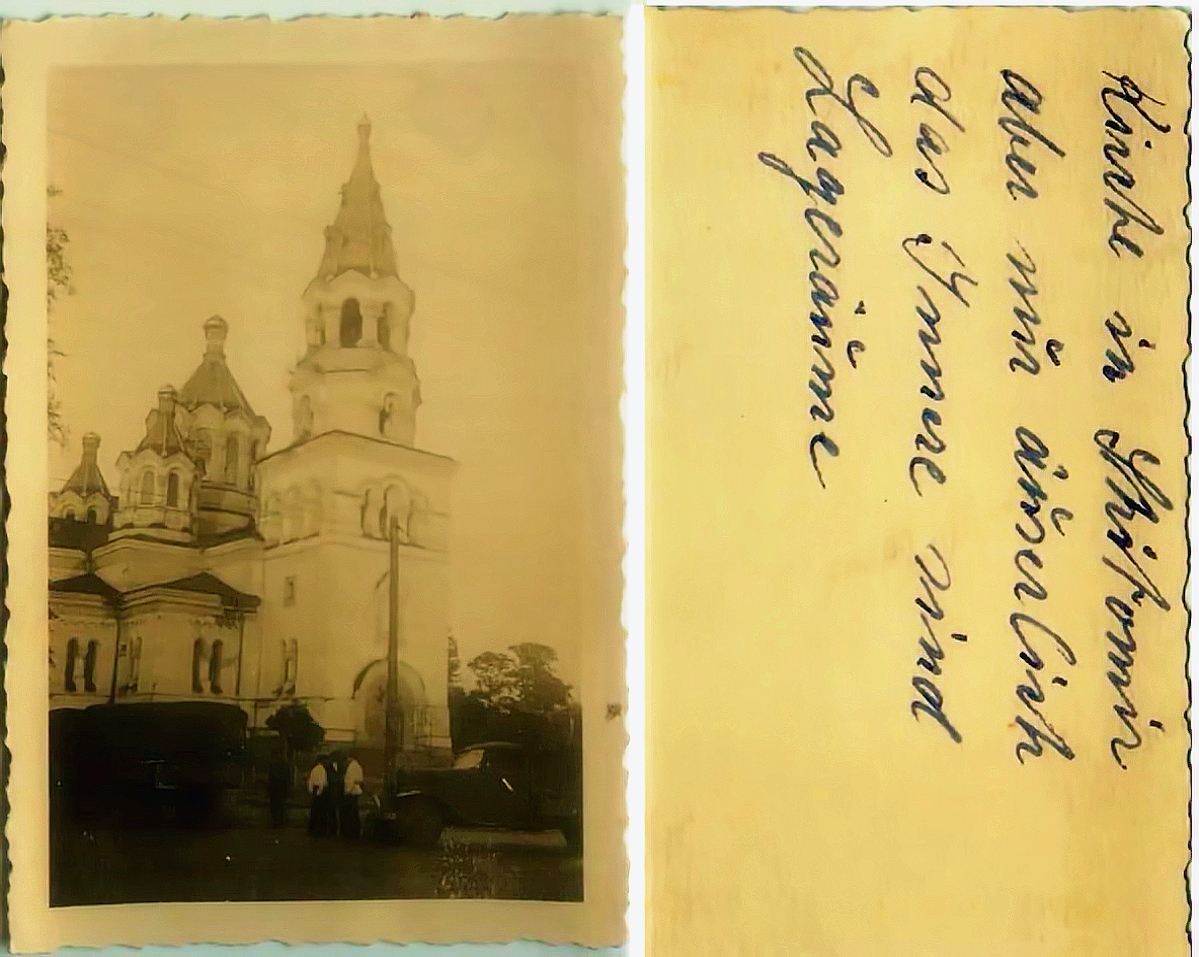 Kirche in Shitomir
aber nur äußerlich
das Innere sind
Lagerräume